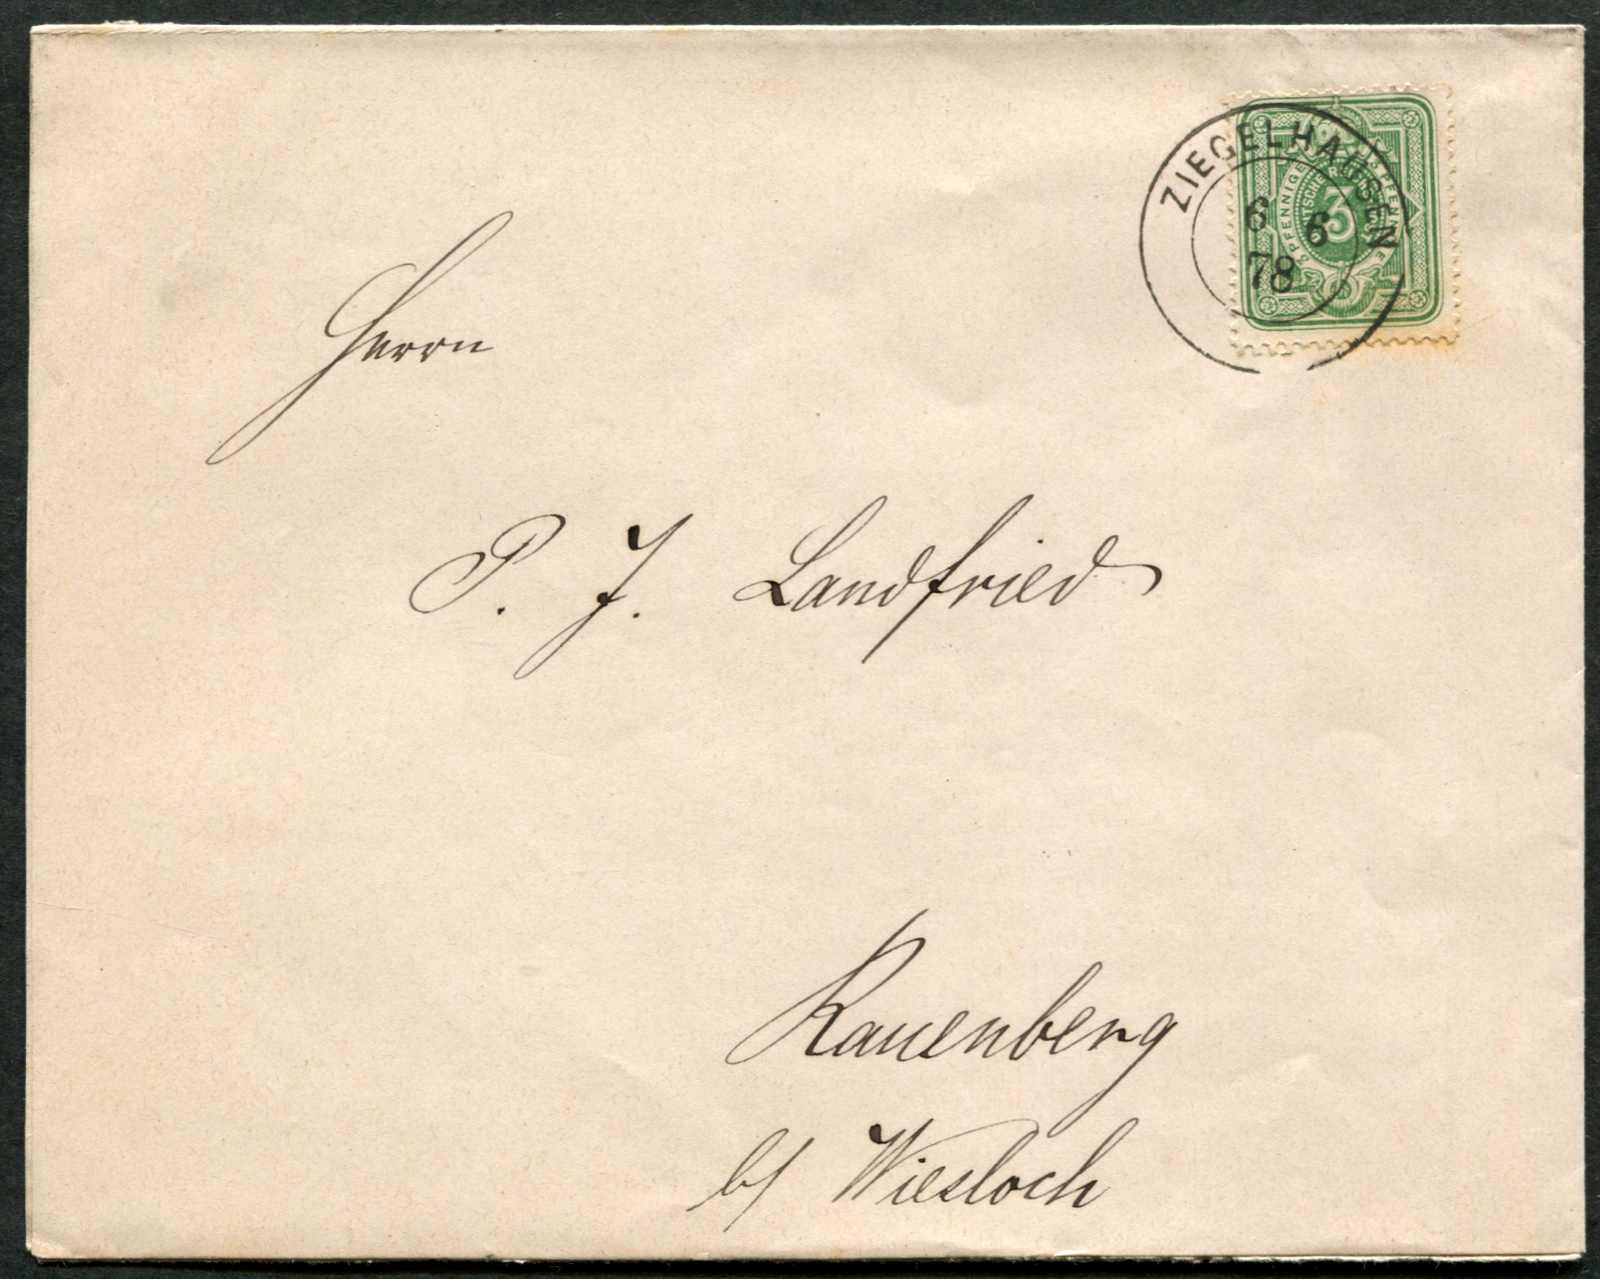 ZIEGELHAUSEN
6 6
78
3 PFENNIGE
3
Herrn
P. J. Landfried
Rauenberg
b/ Wiesloch